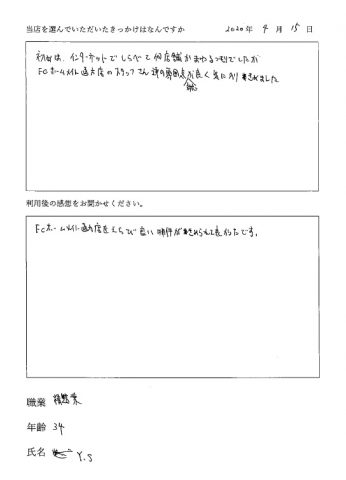 当店を選んでいただいたきっかけはなんですか 2020年 9月 15日
初めは、インターネットでしらべて 何店舗かまわる予定でしたが
FCホームメイト 店のスタッフさん達の雰囲気が良く気に入りきめました
利用後の感想をお聞かせください。
FCホームメイト 店をえらび良い物件がきめられて良かったです。
職業
年齢 34
氏名 Y.S